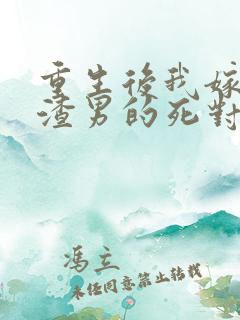 重生後我嫁
渣男的死對
馮立
未经同意禁止转载